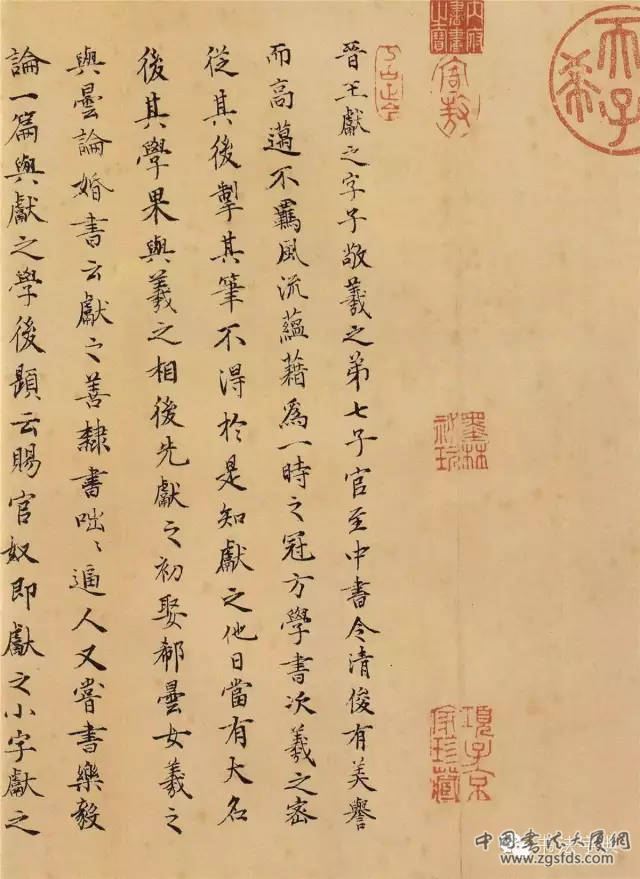 晉王獻之字子敬羲之第七子官至中書令清俊有美譽
而高邁不羈風流蘊藉爲一時之冠方學書次羲之密
從其後掣其筆不得於是知獻之他日當有大名
後其學果與羲之相後先獻之初娶郗曇女羲之
與曇論婚書云獻之善隸書咄〻逼人又嘗書樂毅
論一篇與獻之學後題云賜官奴即獻之小字獻之
天子
希
墨林
祕玩
項子京
家珍藏
中国书法大厦網
www.zgsfds.com